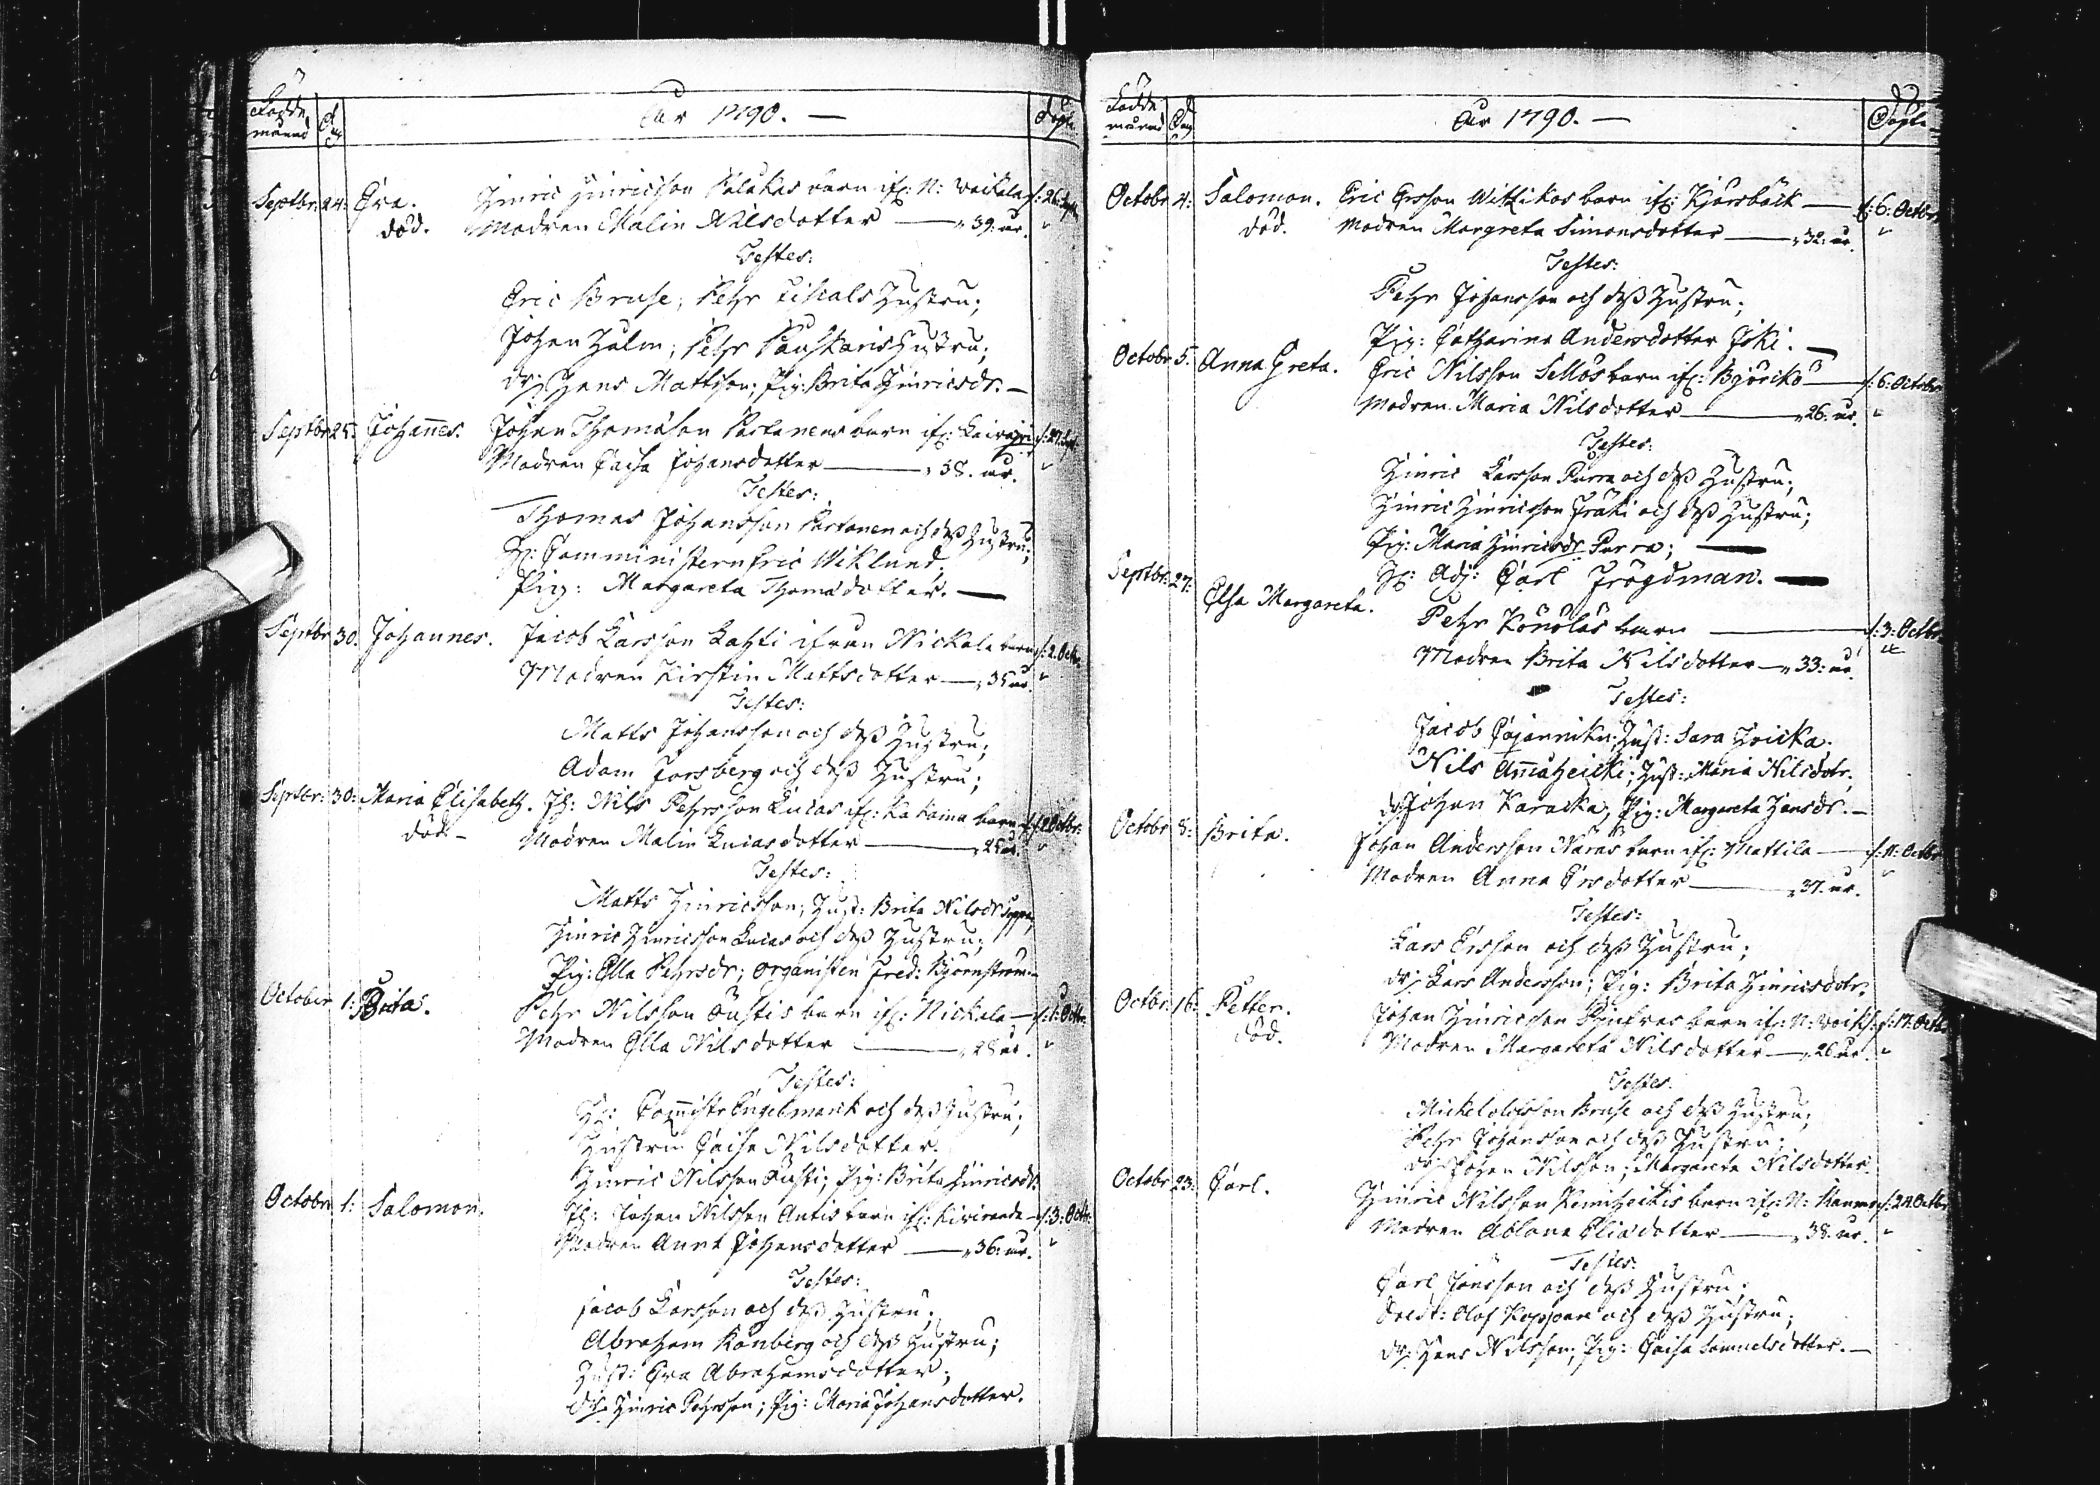 Födde månad Dag År 1790. — Döpte
Septbr: 24: Eva. Hinric Hinricsson barn ifr: N: Woickala d: 26 Sept:
död. Modren Malin Nilsdotter — 39. år. "
Testes:
Eric Bruse; Pehr Hustru;
Johan Halm; Pehr Hustru;
dr: Hans Mattsson; Pig: Brita Hinricsdr. —
Septbr 25. Johannes. Johan Thomasson Partanens barn ifr: d: 27 Sept:
Modren Caisa Johansdotter — 38. år. "
Testes:
Thomas Johansson Partanen och dess Hustru;
Hr: Comministern Eric Wiklund.
Pig: Margareta Thomædotter. —
Septbr 30. Johannes. Jacob Larsson Lahti ifrån Nickala barn d: 2. Octbr:
Modren Kirstin Mattsdotter — 35 år. "
Testes:
Matts Johansson och dess Hustru;
Adam Forsberg och dess Hustru;
Septbr: 30: Maria Elisabeth. Nils Pehrsson Lucas ifr: Kakama barn d: 2 Octbr:
död. — Modren Malin Lucasdotter — 25 år. "
Testes:
Matts Hinricsson; Hust: Brita Nilsdr
Hinric Hinricsson Lucas och dess Hustru;
Pig: Ella Pehrsdr; organisten Fred: Björnström —
October 1: Brita. Pehr Nilsson barn ifr: Nickala — d: 1: Octbr:
Modren Ella Nilsdotter — 28 år. "
Testes:
Hr: Engelmarck och dess Hustru;
Hustrun Caisa Nilsdotter.
Hinric Nilsson Pig: Brita Hinricsdr:
Octobr 1: Salomon. Johan Nilsson Antis barn ifr: Kiviranda — d: 3: Octbr:
Modren Anna Johansdotter — 36: år. "
Testes:
Jacob Larsson och dess Hustru;
Abraham Rönberg och dess Hustru;
Hust: Eva Abrahamsdotter;
dr: Hinric Pehrsson; Pig: Maria Johansdotter.
Födde månad Dag År 1790. — Döpte
Octobr 4: Salomon. Eric Ersson Wittikos barn ifr: Kjörsbäck — d: 6: Octbr.
död. Modren Margreta Simonsdotter — 32: år. "
Testes:
Pehr Johansson och dess Hustru;
Pig: Catharina Andersdotter Joki. —
Octobr 5. Anna Greta. Eric Nilsson Sellös barn ifr: Björikö — d: 6: Octobr
Modren Maria Nilsdotter — 26: år. "
Testes:
Hinric Larsson Purra och dess Hustru;
Hinric Hinricsson Fräki och dess Hustru;
Pig: Maria Hinricsdr Purra; —
Hr: Adj: Carl Frögdman. —
Septbr: 27: Elsa Margareta. Pehr Könölös barn — d: 3: Octbr.
Modren Brita Nilsdotter — 33: år.
Testes:
Jacob Hust: Sara
Nils Hust: Maria Nilsdotr;
dr: Johan Karacka; Pig: Margareta Hansdr. —
Octobr 8: Brita. Johan Andersson Näräs barn ifr: Mattila — d: 11: Octbr
Modren Anna Ersdotter — 37. år. "
Testes:
Lars Ersson och dess Hustru;
dr: Lars Andersson; Pig: Brita Hinricsdotr.
Octbr: 16: Petter. Johan Hinricsson barn ifr: N: Woick: d: 17: Octbr
död. Modren Margareta Nilsdotter — 26 år. "
Testes:
Mickel Olofsson Bruse och dess Hustru;
Pehr Johansson och dess Hustru;
dr: Johan Nilsson; Margareta Nilsdotter.
Octobr 23: Carl. Hinric Nilsson barn ifr: N: d: 24 Octbr
Modren Ablona Eliædotter — 38. år. "
Testes:
Carl Jönsson och dess Hustru;
Olof Koppoan och dess Hustru;
dr: Hans Nilsson; Pig: Caisa Samuelsdotter. —